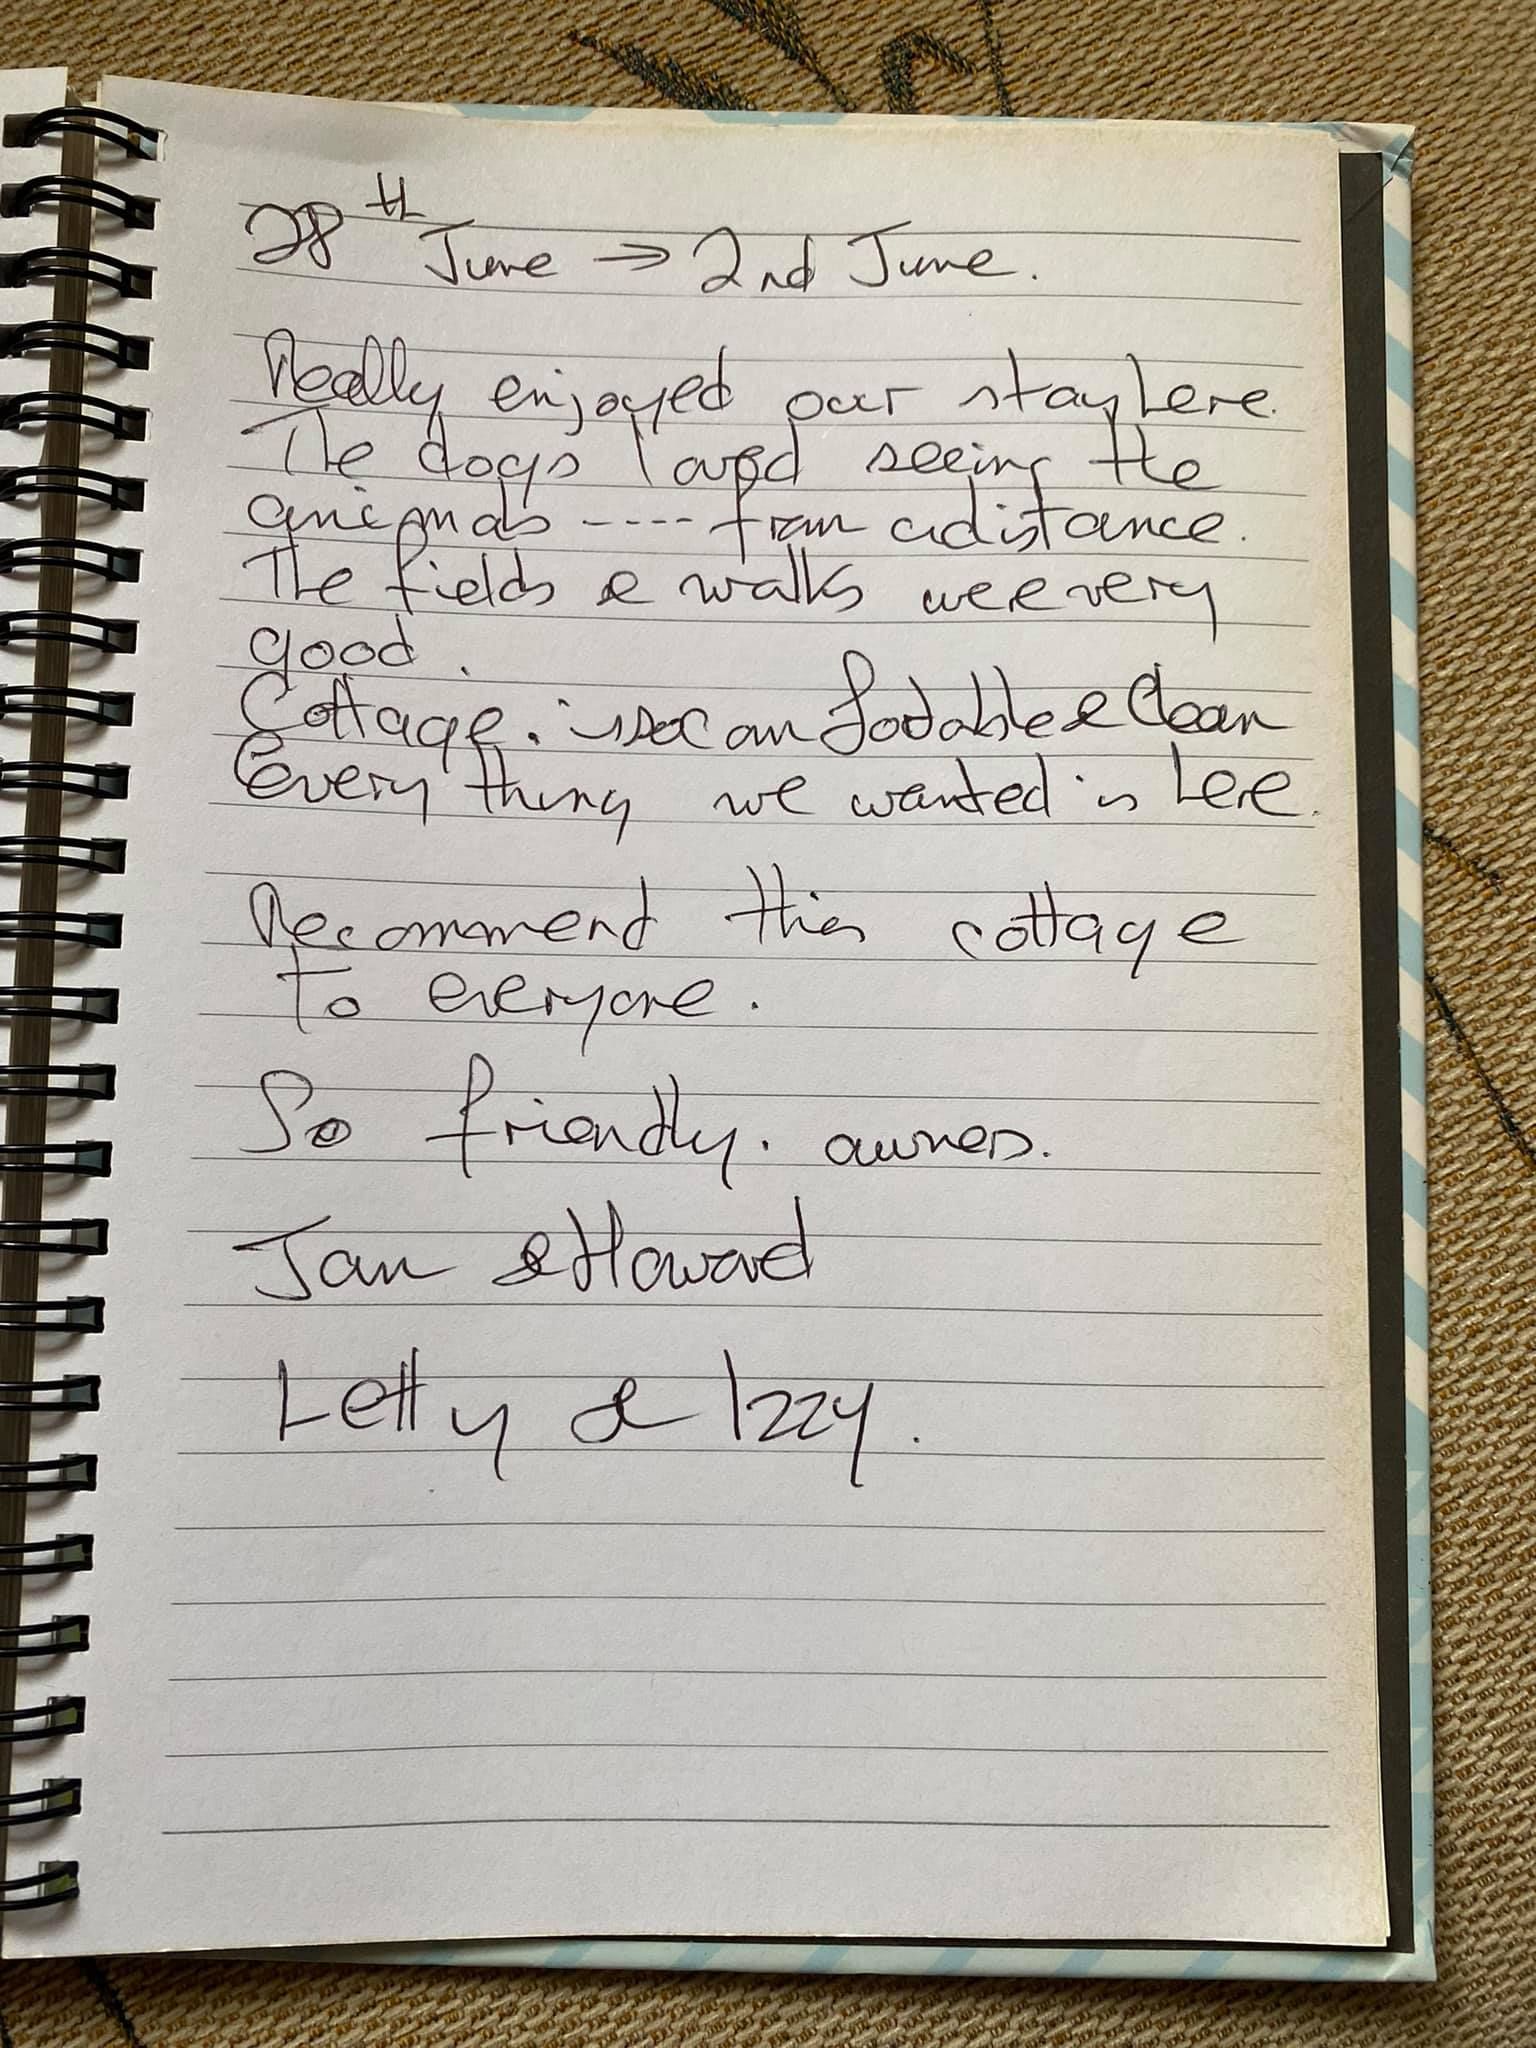 28th June → 2nd June.
Really enjoyed our stay here.
The dogs loved seeing the
animals ---- from a distance.
The fields & walks were very
good.
Cottage. is so comfortable & Clean
Everything we wanted is here.
Recommend this cottage
to everyone.
So friendly. owners.
Jan & Howard
Letty & Izzy.